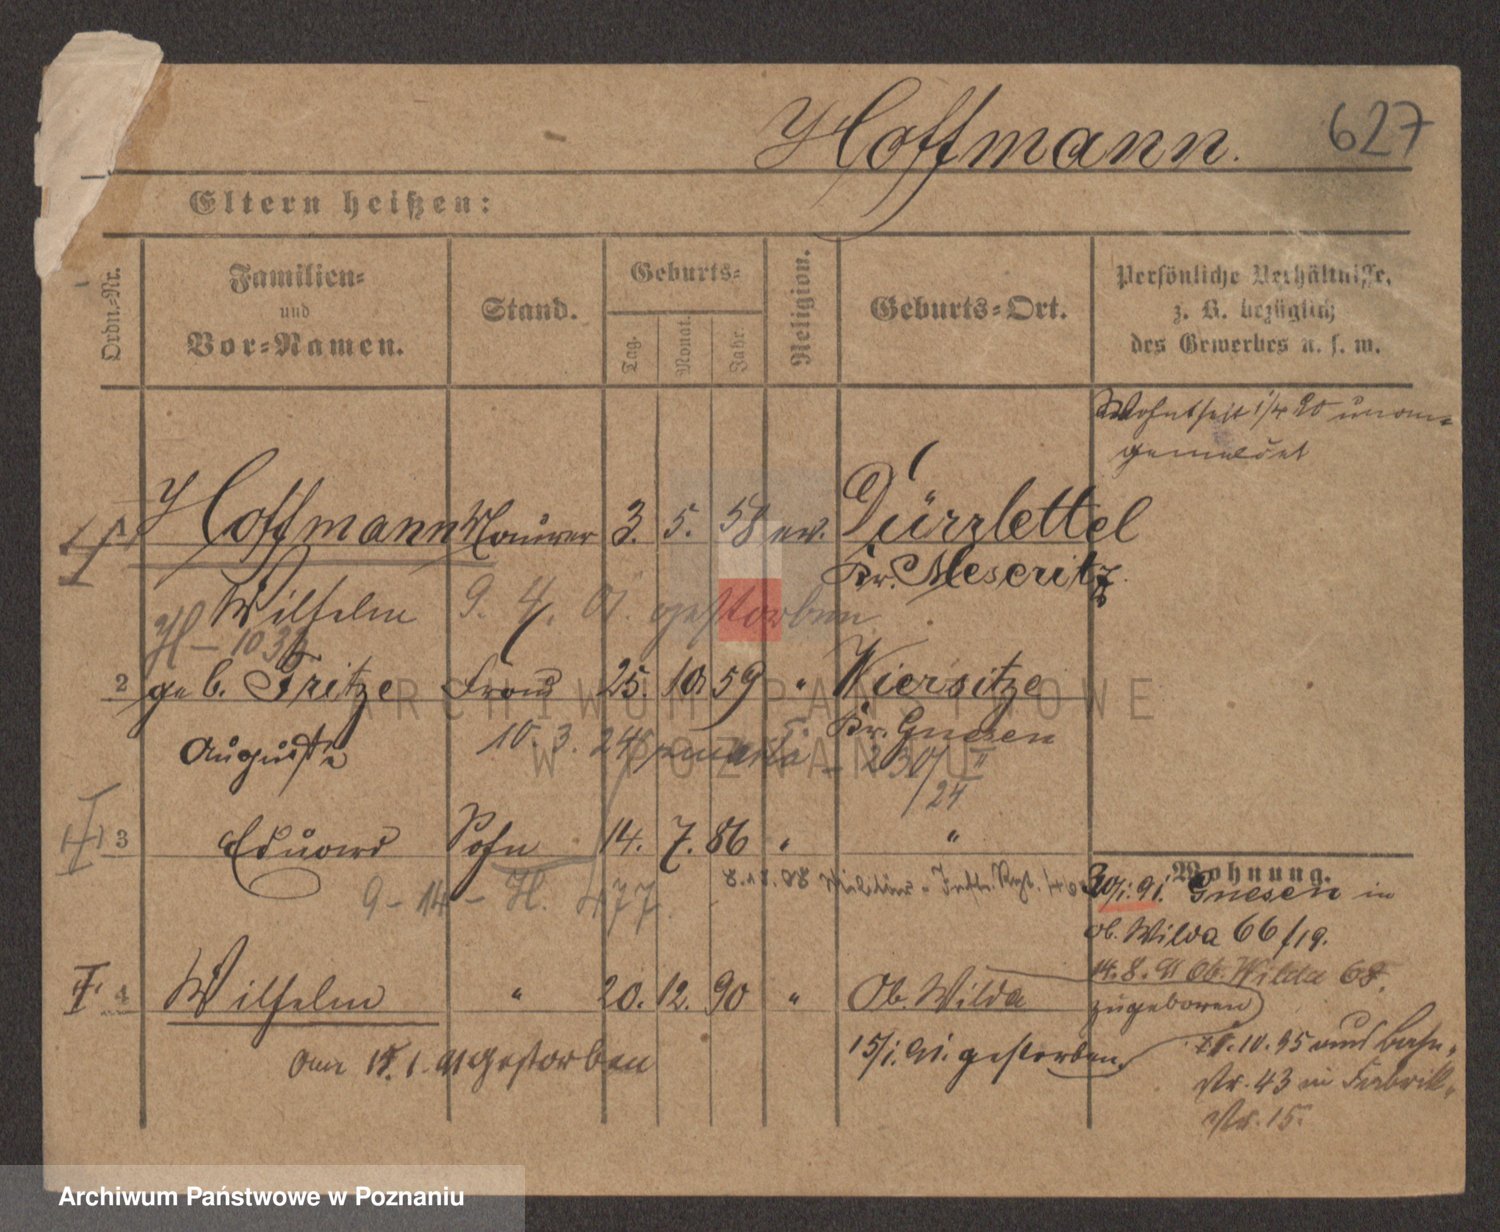 Hoffmann. 627
Eltern heißen:
Ordn.-Nr.
Familien-
und
Vor-Namen.
Stand.
Geburts-
Tag.
Monat.
Jahr.
Religion.
Geburts-Ort.
Persönliche Verhältnisse,
z. B. bezüglich
des Gewerbes u. s. w.
Wohnt seit 1/4 90 unan-
gemeldet
Hoffmann Maurer 3. 5. 58 ev. Dürrlettel
Kr. Meseritz
Wilhelm 9. 4. 01 gestorben
H - 103
2 geb. Fritze Frau 25. 10. 59 " Wiersitze
Kr. Gnesen
Auguste 10. 3. 24
230/II
/24
3 Eduard Sohn 14. 7. 86 " "
9 - 14 - H. 477
8.12.08 Militär
Wohnung.
30/1. 91. Gnesen in
Ob. Wilda 66/19.
14. 8. 91 Ob. Wilda 68.
4 Wilhelm " 20. 12. 90 " Ob. Wilda
zugeboren
am 15. 1. 91 gestorben
15/1. 91. gestorben.
10. 95 und Bahn-
Str. 43 in Fabrik-
Str. 15.
ARCHIWUM PAŃSTWOWE
W POZNANIU
Archiwum Państwowe w Poznaniu